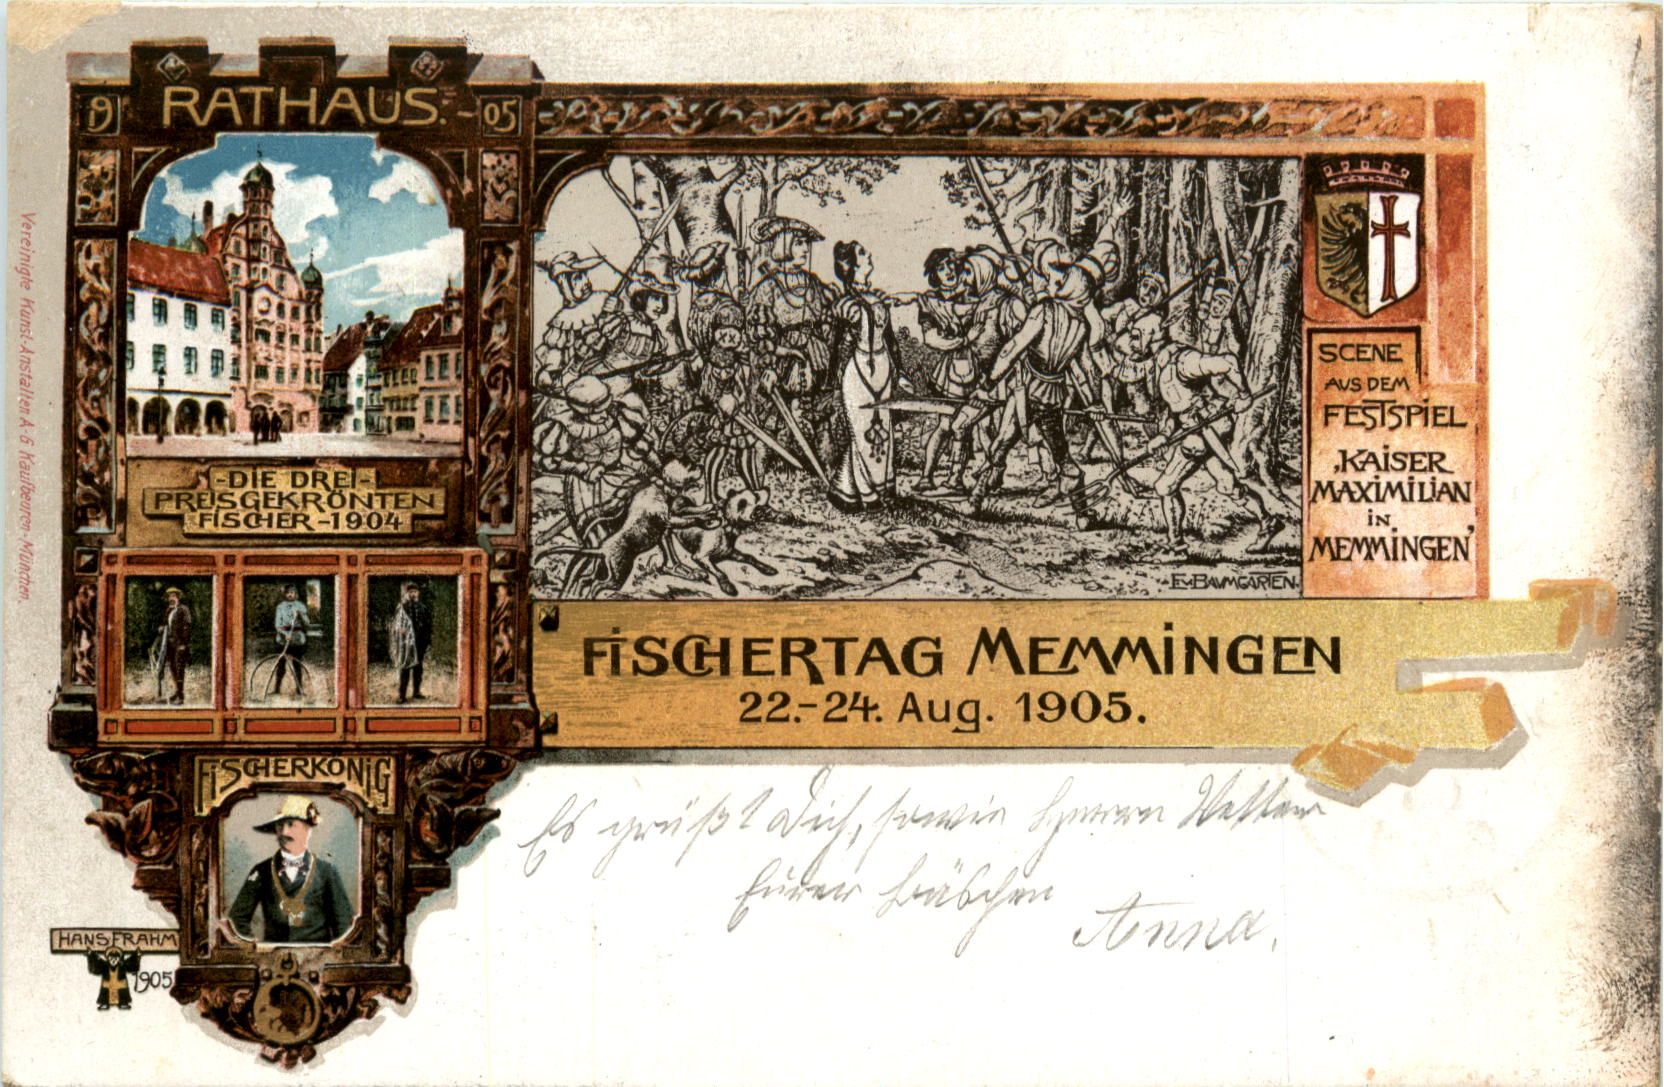 19 RATHAUS. - 05
-DIE DREI-
PREISGEKRÖNTEN
FISCHER - 1904
FISCHERKÖNIG
HANS FRAHM
1905
Vereinigte Kunst-Anstalten A-G Kaufbeuren-München.
XX
E.v. BAUMGARTEN.
SCENE
AUS DEM
FESTSPIEL
‚KAISER
MAXIMILIAN
IN
MEMMINGEN'
FISCHERTAG MEMMINGEN
22.-24. Aug. 1905.
Es grüßt Dich, sowie Herrn Vetter
Eurer Bäschen
Anna.